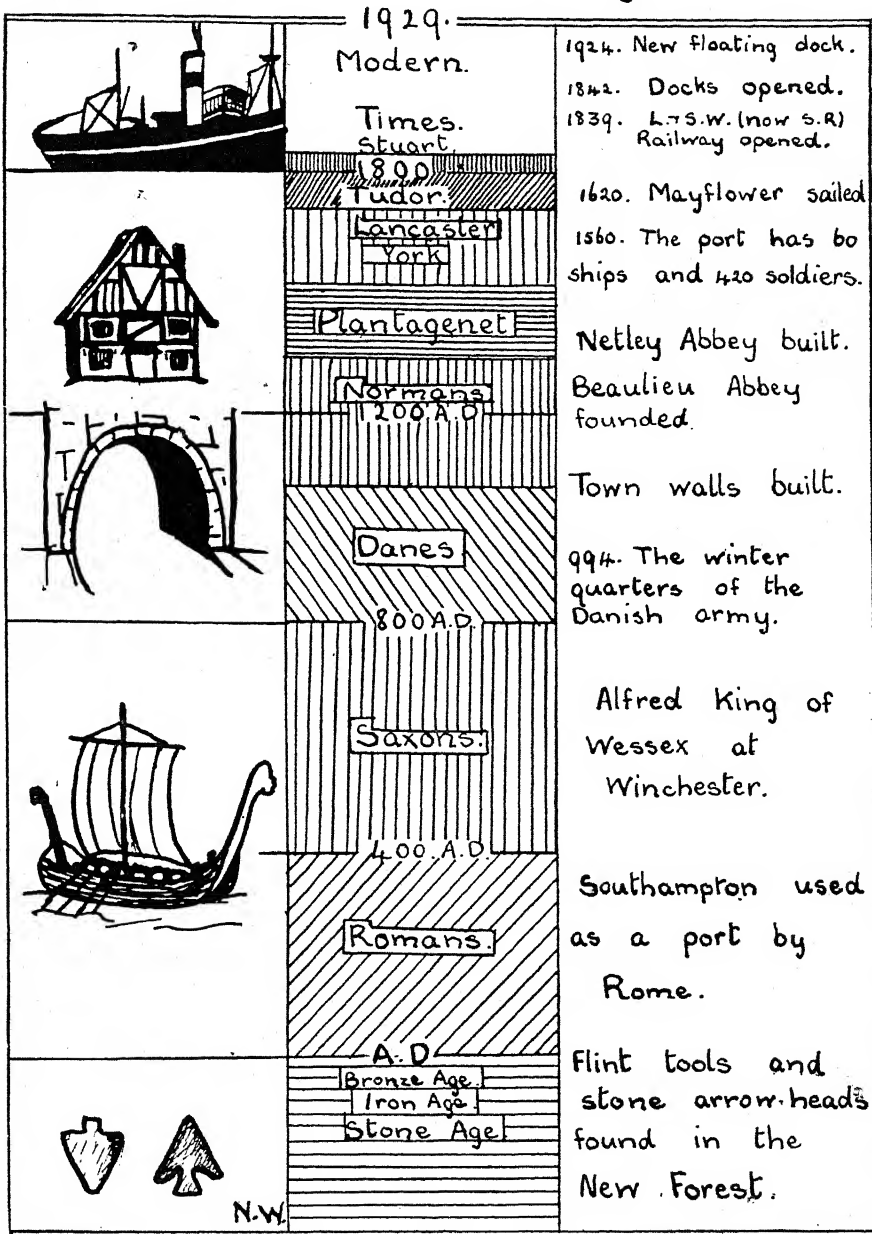 1929.
Modern.
Times.
Stuart.
1800
Tudor.
Lancaster
York
Plantagenet
Normans
1200 A.D
Danes
800 A.D.
Saxons.
400. A.D.
Romans.
A.D
Bronze Age.
Iron Age.
Stone Age
1924. New floating dock.
1842. Docks opened.
1839. L & S.W. (now S.R)
Railway opened.
1620. Mayflower sailed
1560. The port has 60
ships and 420 soldiers.
Netley Abbey built.
Beaulieu Abbey
founded.
Town walls built.
994. The winter
quarters of the
Danish army.
Alfred King of
Wessex at
Winchester.
Southampton used
as a port by
Rome.
Flint tools and
stone arrow-heads
found in the
New Forest.
N.W.